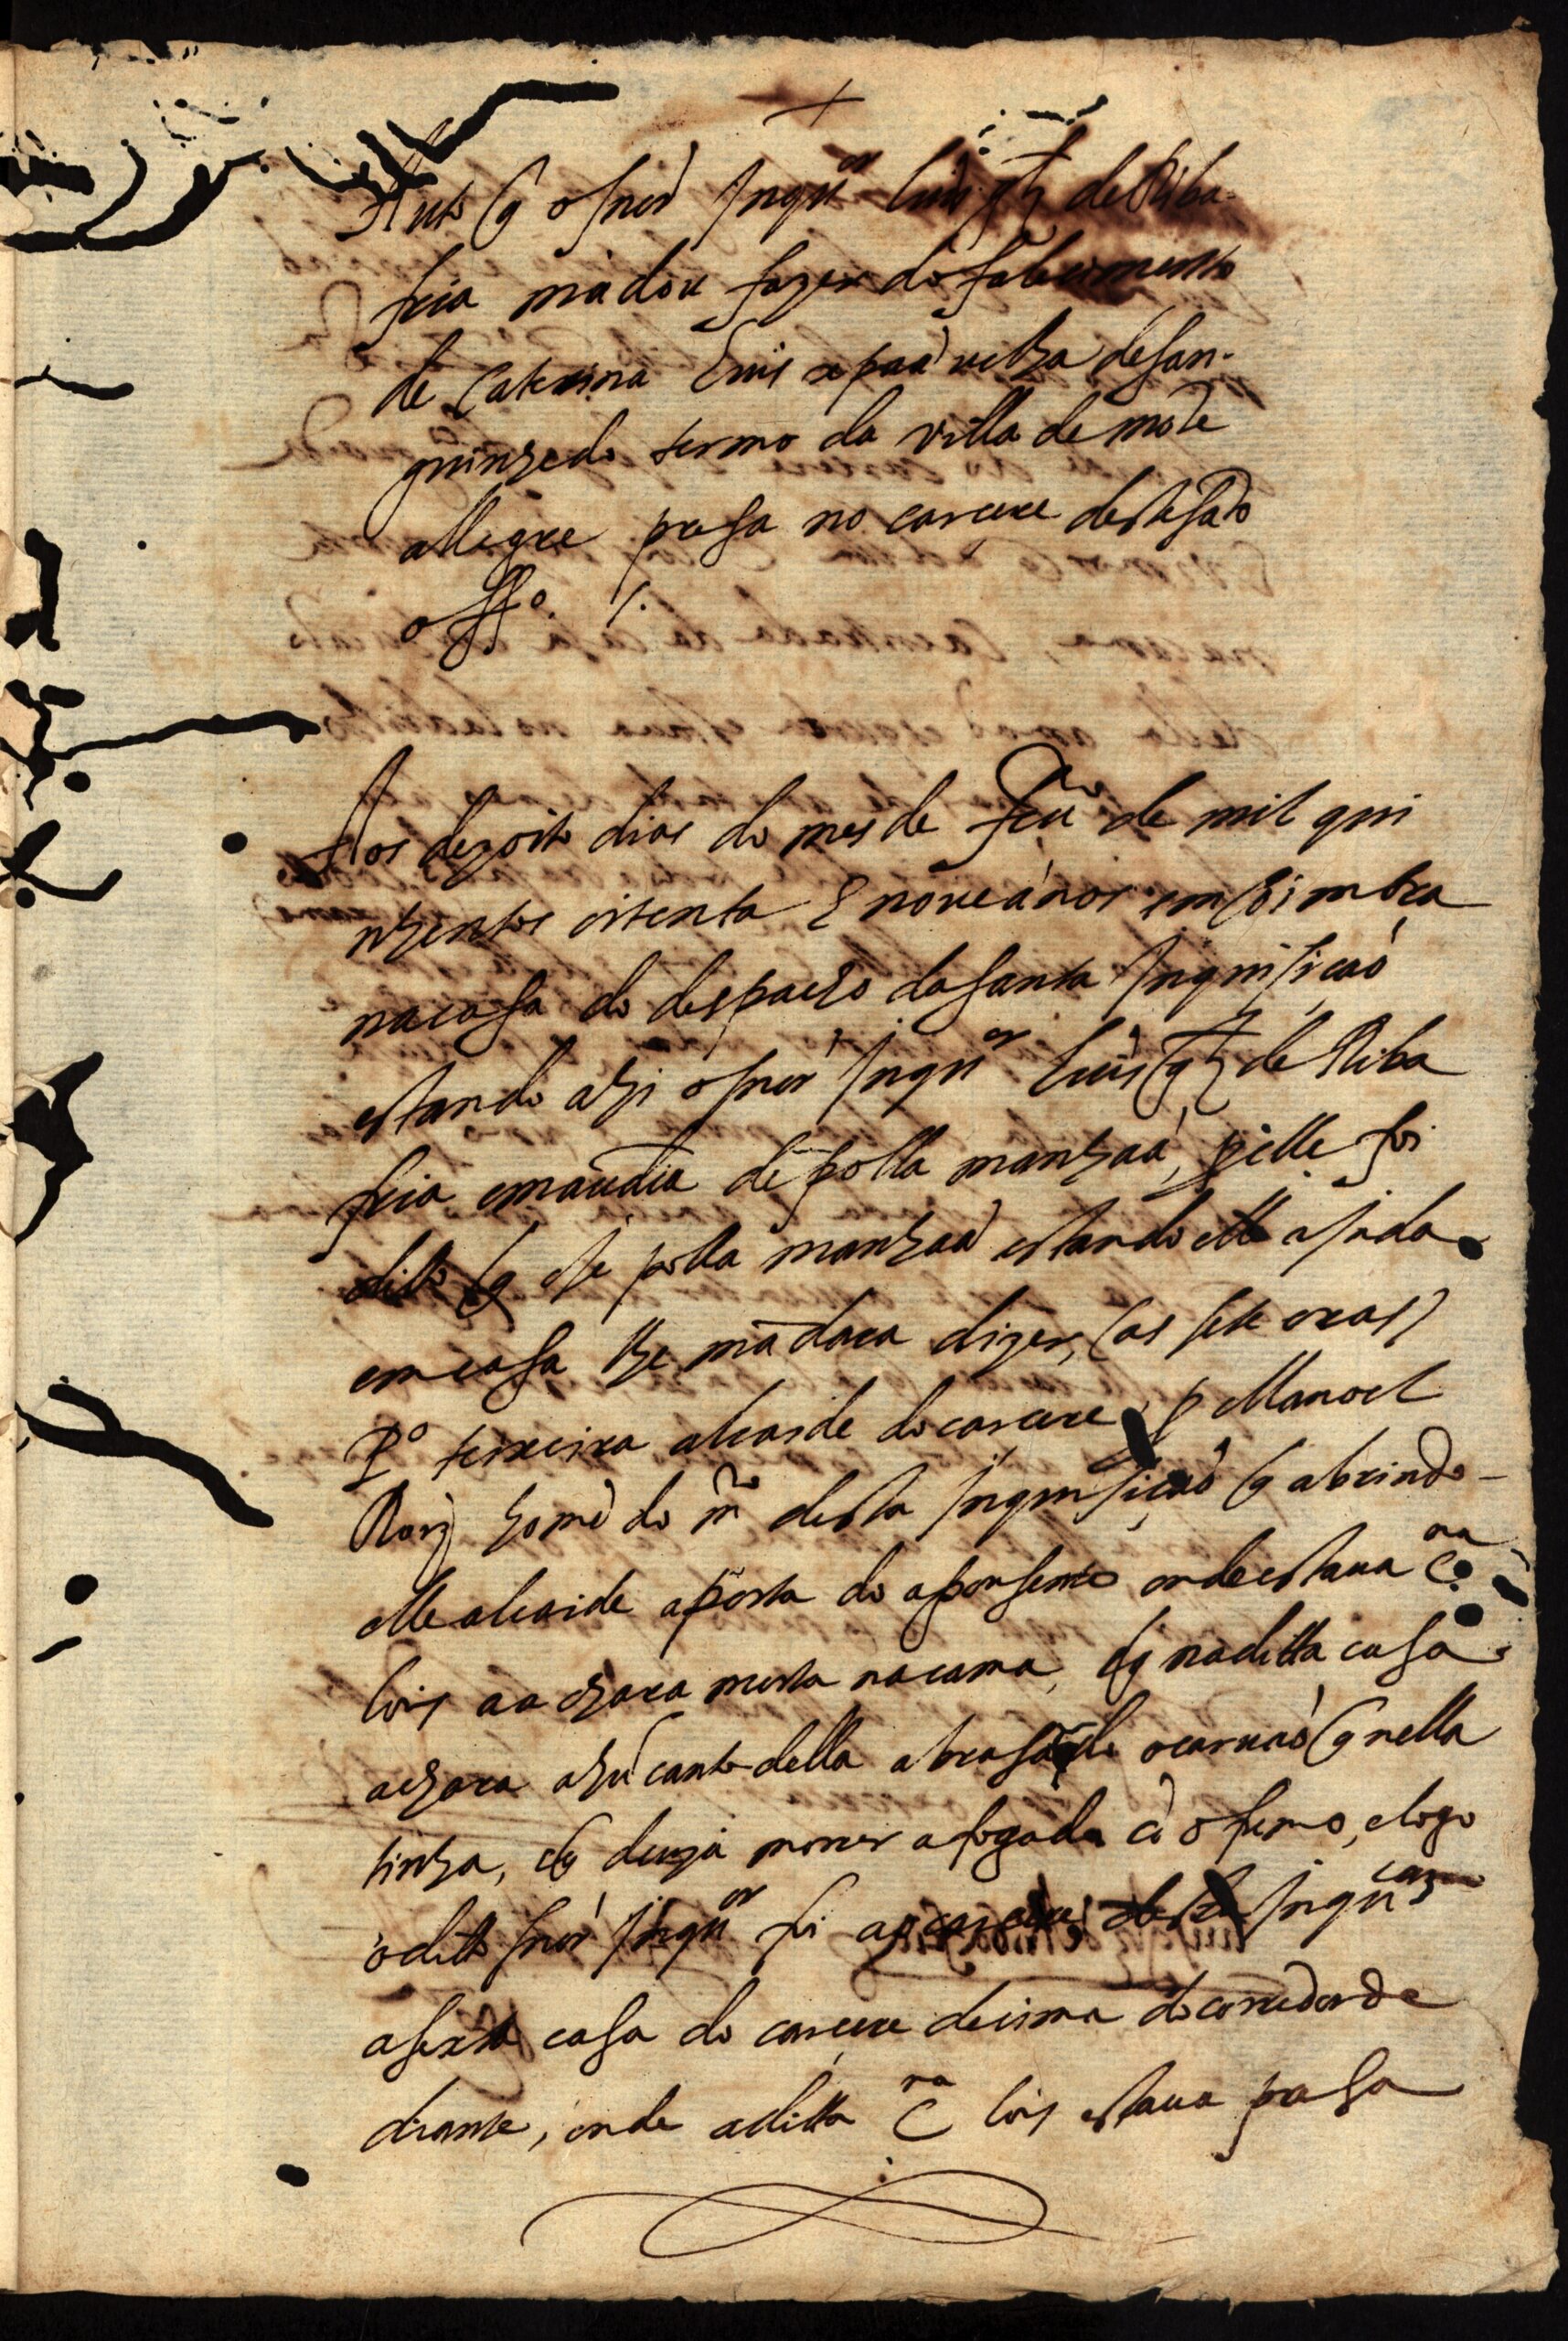 Auto q̃ o snõr Inqu.or Luis glz de Riba
fria mãdou fazer do falecimento
de Caterina Luis xpaã velha de San-
guinhedo termo da villa de mõte
allegre presa no carcere deste sãto
offº /.
Aos dezoito dias do mes de feur.o de mil qui
nhentos oitenta E noue ãnos em Coimbra
na casa do despacho da santa Inquisicaõ
estando ahi o snõr Inqu.or Luis glz de Riba
fria em audiẽcia de polla manhaã, p elle foi
ditto q̃ este polla manhaã estando elle ajnda
em casa lhe mãdara dizer, (as sete oras)
Pº ferreira alcaide do carcere, p Manoel
Roiz homẽ do m.ro desta Inquisicaõ q̃ abrindo-
elle alcaide a porta do aposento onde estaua C.na
Lois a achara morta na cama, e q̃ na ditta casa
achara ahũ canto della abrasado o caruaõ q̃ nella
tinha, e q̃ deuia morrer afogada cõ o fumo, e logo
o ditto snõr Inqu.or foi ao carcere desta Inqu.cam
a sexta casa do carcere de cima do corredor de
diante, onde a ditta C.na Lois estaua presa